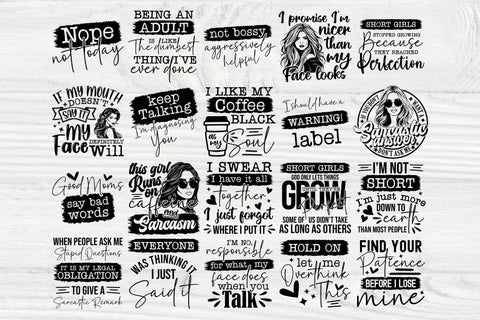 Nope
not today
BEING AN
ADULT
IS LIKE
The dumbest
THING I'VE
ever done
not bossy
aggressively
helpful
I promise I'm
nicer
than
my
Face looks
SHORT GIRLS
STOPPED GROWING
Because
THEY REACHED
Perfection
IF MY MOUTH
DOESN'T
SAY IT
MY
Face
DEFINITELY
Will
keep
Talking
I'm diagnosing
You
I LIKE MY
Coffee
BLACK
as my
Soul
I should have a
WARNING!
label
IF YOU DON'T WANT A
Sarcastic
Answer
DON'T ASK ME
Good Moms
say bad
words
this girl
Runs
on
caffeine
and
Sarcasm
I SWEAR
I have it all
together
I just forgot
WHERE I PUT IT
SHORT GIRLS
GOD ONLY LETS THINGS
GROW
SOME OF US DIDN'T TAKE
AS LONG AS OTHERS
I'M NOT
SHORT
I'm just more
DOWN TO
earth
THAN MOST PEOPLE
WHEN PEOPLE ASK ME
Stupid Questions
IT IS MY LEGAL
OBLIGATION
TO GIVE A
Sarcastic Remark
EVERYONE
WAS THINKING IT
I JUST
Said it
I'M NO
responsible
for what my
face does
when you
Talk
HOLD ON
let me
Overthink
This
FIND YOUR
Patience
BEFORE I LOSE
mine